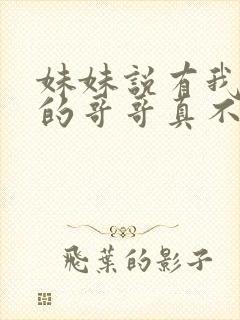 妹妹說有我
的哥哥真不
飛葉的影子